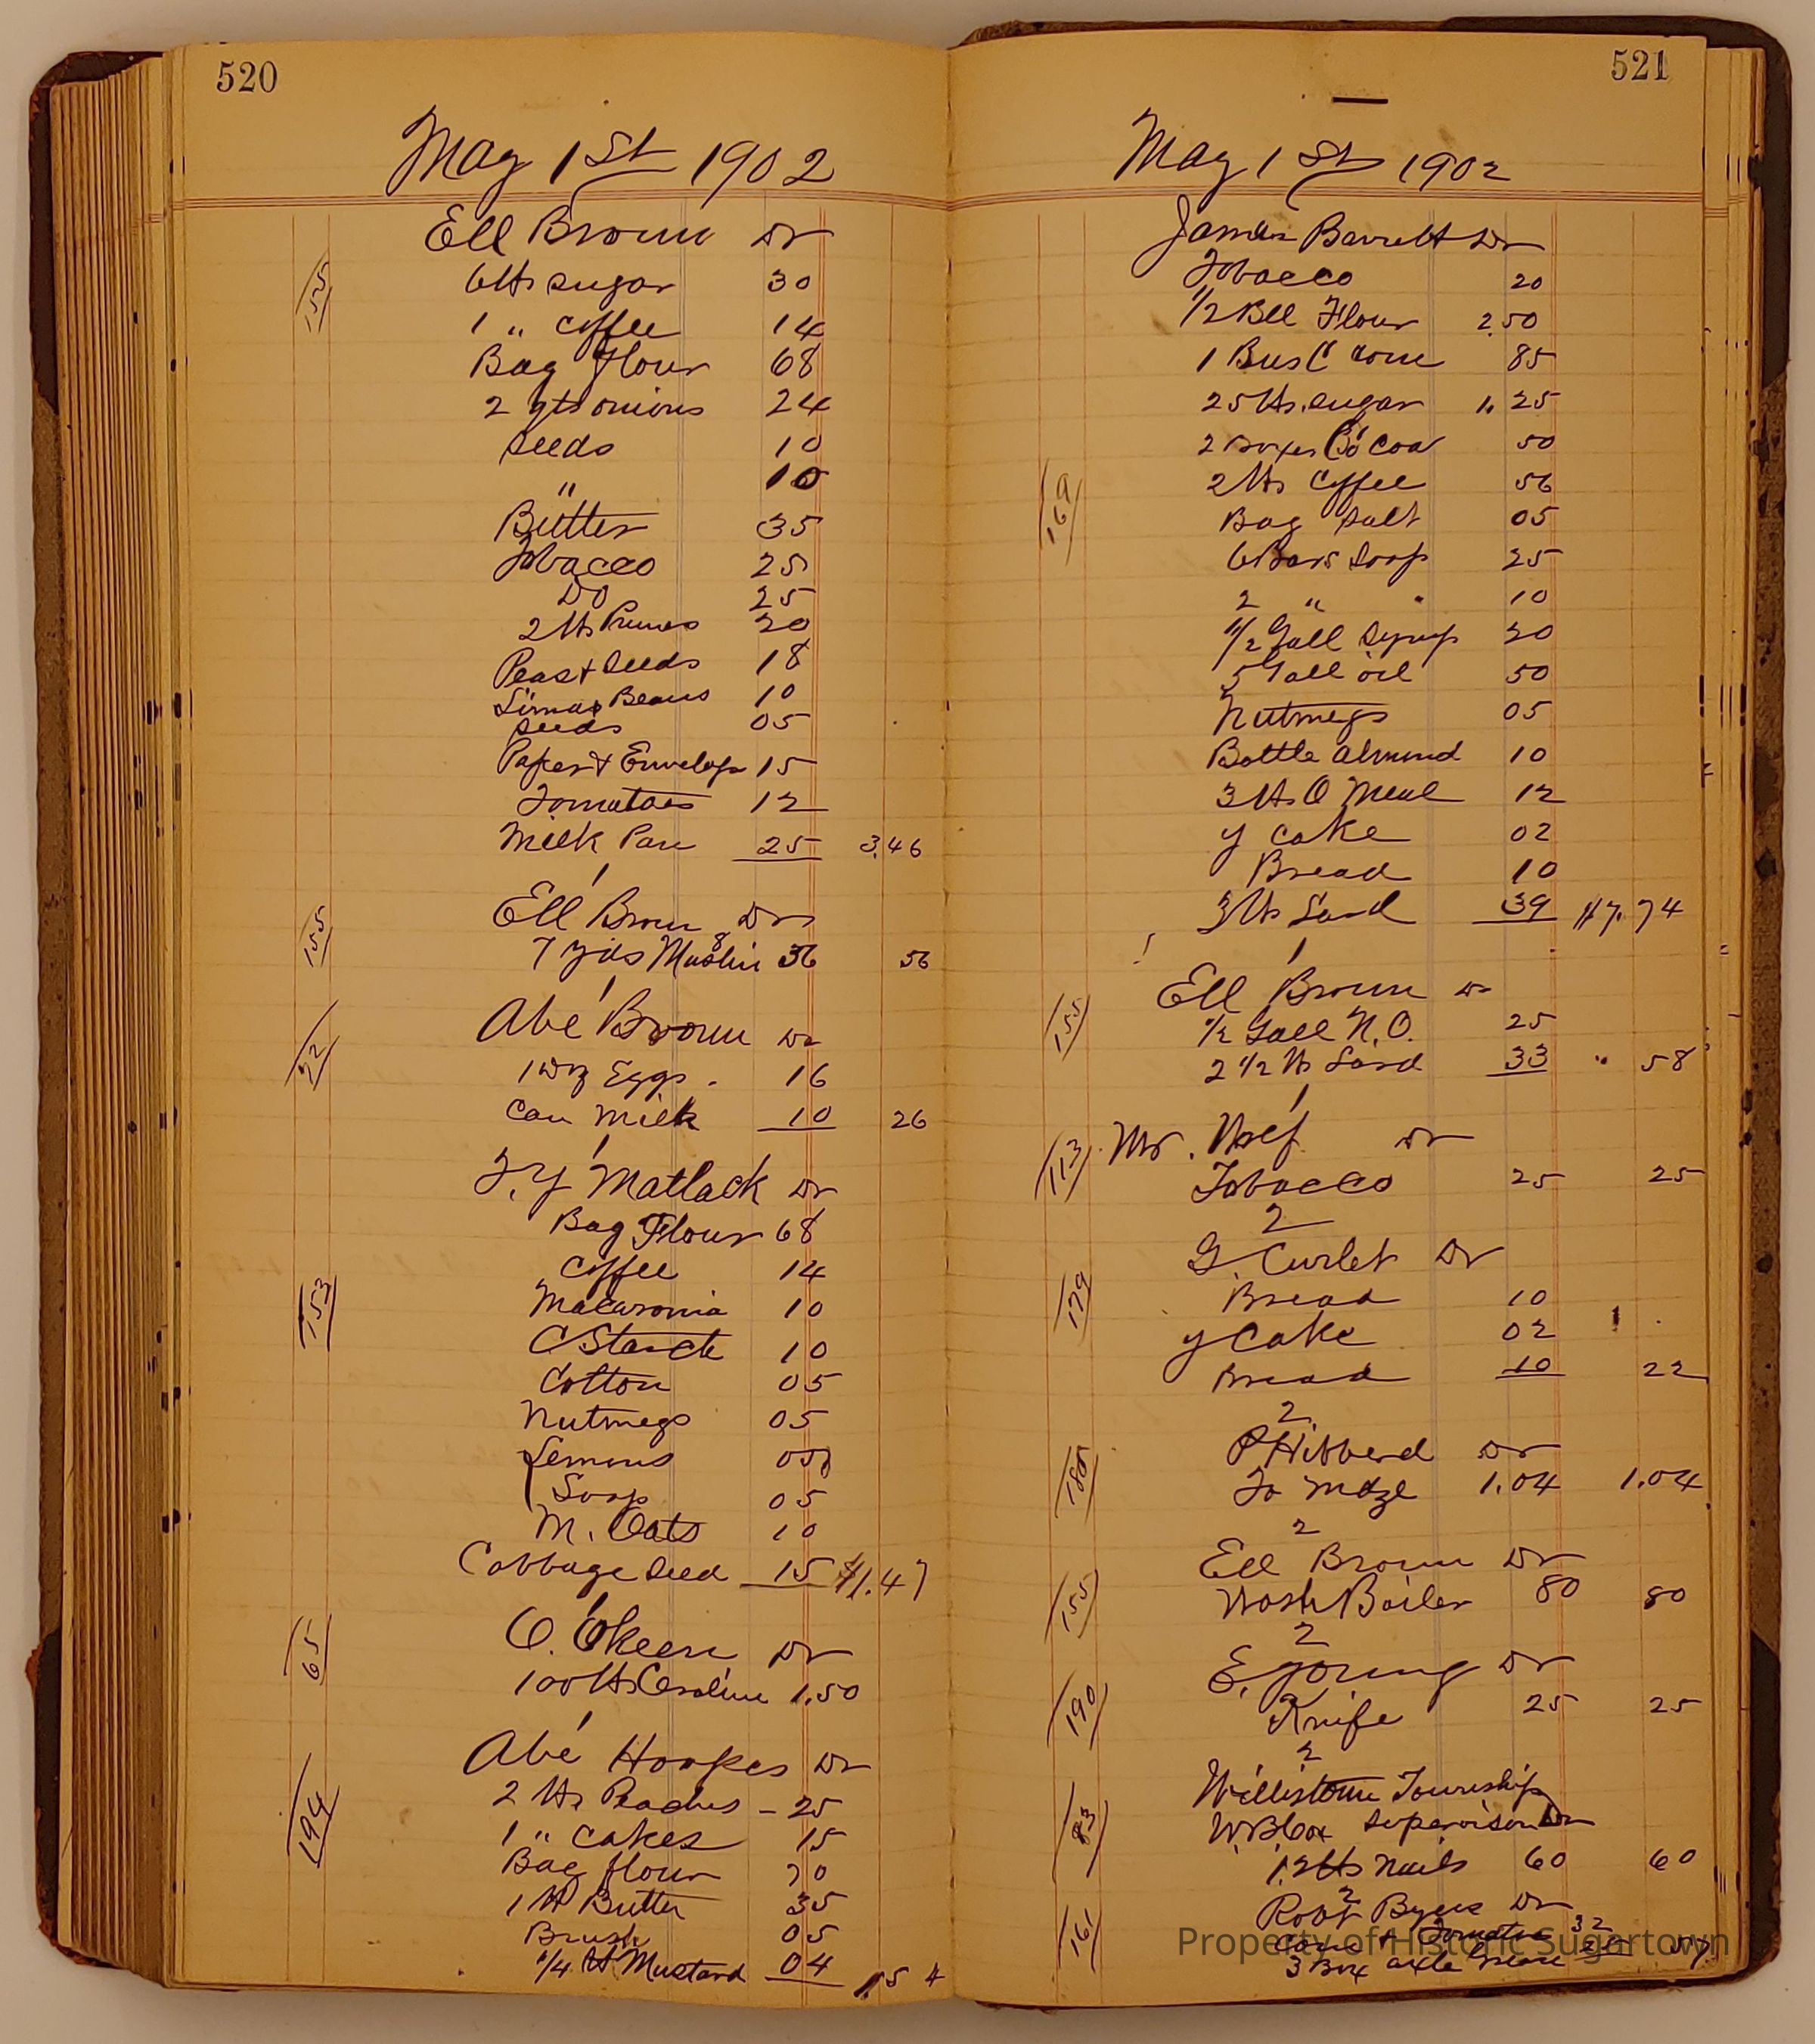 520
May 1st 1902
Ell Brown Dr
155
6 lbs sugar 30
1 " coffee 14
Bag flour 68
2 qts onions 24
seeds 10
" 10
Butter 35
Tobacco 25
Do 25
2 lbs Prunes 20
Peas + seeds 18
Limas Beans 10
seeds 05
Paper + Envelops 15
Tomatoes 12
Milk Pan 25 3.46
1
Ell Brown Dr
155
7 yds Muslin 8 56 56
1
Abe Brown Dr
22
1 Doz Eggs. 16
Can Milk 10 26
1
T. Y Matlack Dr
153
Bag Flour 68
Coffee 14
Macaronia 10
C Starch 10
Cotton 05
Nutmegs 05
Lemons 05
Soap 05
M. Oats 10
Cabbage seed 15 $1.47
1
O. Okeen Dr
65
100 lbs 1.50
1
Abe Hoopes Dr
194
2 lbs Peaches - 25
1 " cakes 15
Bag flour 70
1 lb Butter 35
Brush 05
1/4 lb Mustard 04 1.54
521
May 1st 1902
James Barrett Dr
169
Tobacco 20
1/2 Bll Flour 2.50
1 Bus C corn 85
25 lbs. sugar 1.25
2 Boxes Co Coa 50
2 lbs Coffee 56
Bag salt 05
6 Bars soap 25
2 " " 10
1/2 Gall Syrup 20
5 Gall oil 50
Nutmegs 05
Bottle Almond 10
3 lbs O Meal 12
y cake 02
Bread 10
3 lbs Lard 39 $7.74
1
Ell Brown Dr
155
1/2 Gall N.O. 25
2 1/2 lb Lard 33 " 58
1
Mr. Dr
113
Tobacco 25 25
2
G. Curlet Dr
179
Bread 10
y Cake 02
Bread 10 22
2
P Hibberd Dr
To Mdze 1.04 1.04
2
Ell Brown Dr
155
Wash Boiler 80 80
2
E. Young Dr
190
Knife 25 25
2
Willistown Township
W.B Cox Supervisor Dr
83
12 lbs nails 60 60
2
Robt Byers Dr
161
Corn + Tomatoes 32
3 Box axle Grease 25 57
Property of Historic Sugartown